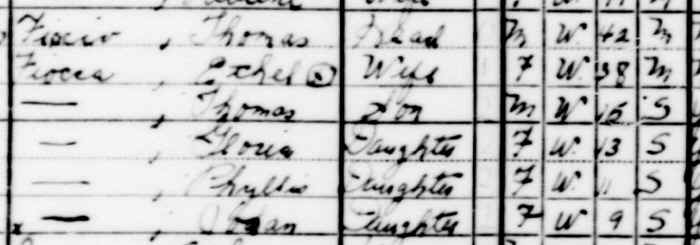 Thomas Head M W 42 M
Fiocca, Ethel Wife F W 38 M
— , Thomas Son M W 15 S
— , Gloria Daughter F W 13 S
— , Phyllis Daughter F W 11 S
— , Daughter F W 9 S